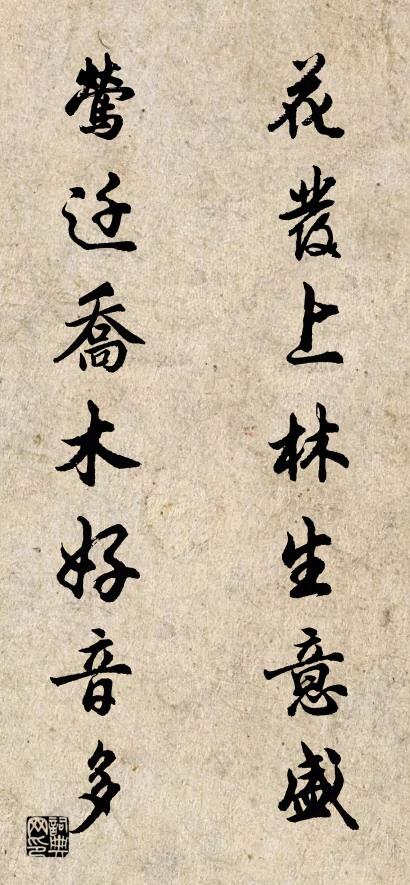 花發上林生意盛
鶯迁喬木好音多
詞典网印